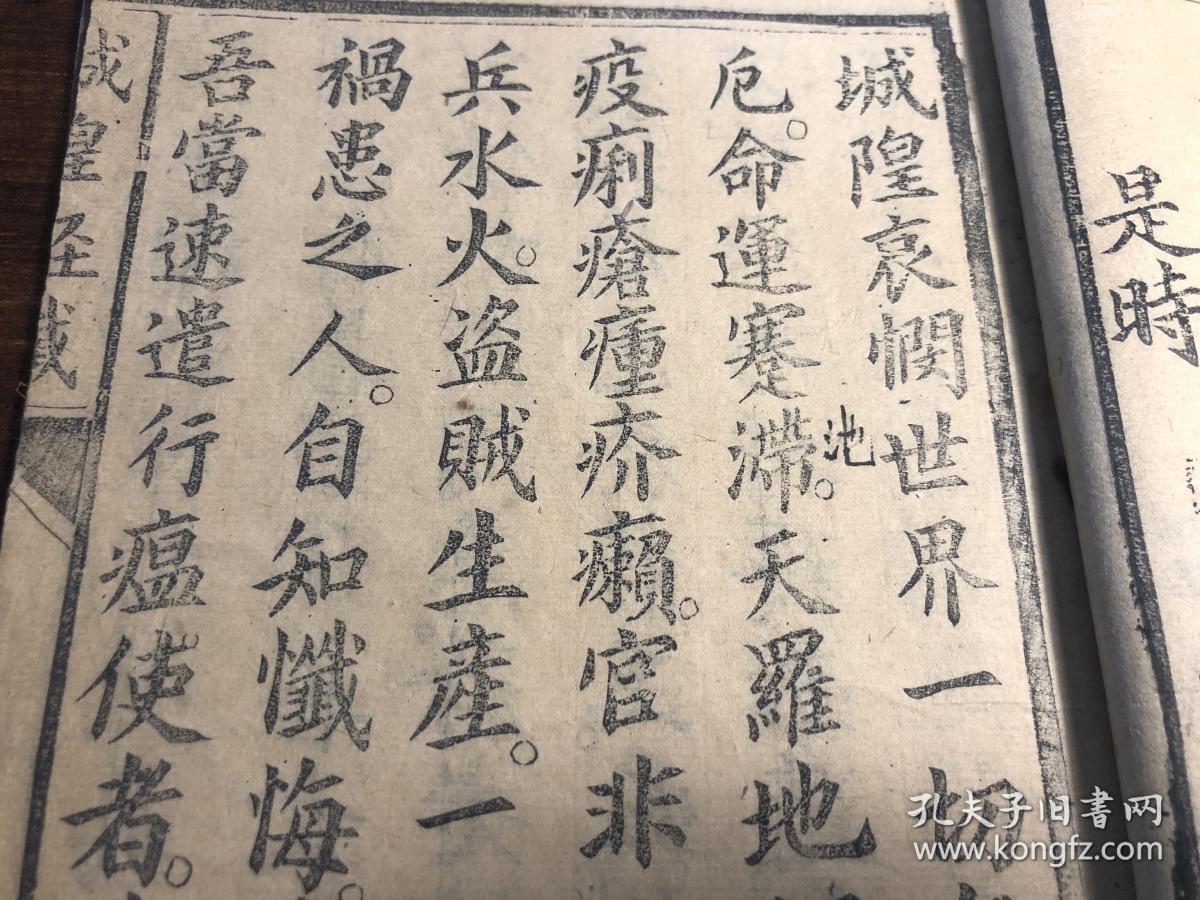 是時
城隍哀憫世界一切
厄。命運蹇滯。天羅地
池
疫痢瘡瘇疥癩。官非
兵水火。盜賊生產。一
禍患之人。自知懺悔。
吾當速遣行瘟使者。
城隍經懺
孔夫子旧书网
www.kongfz.com